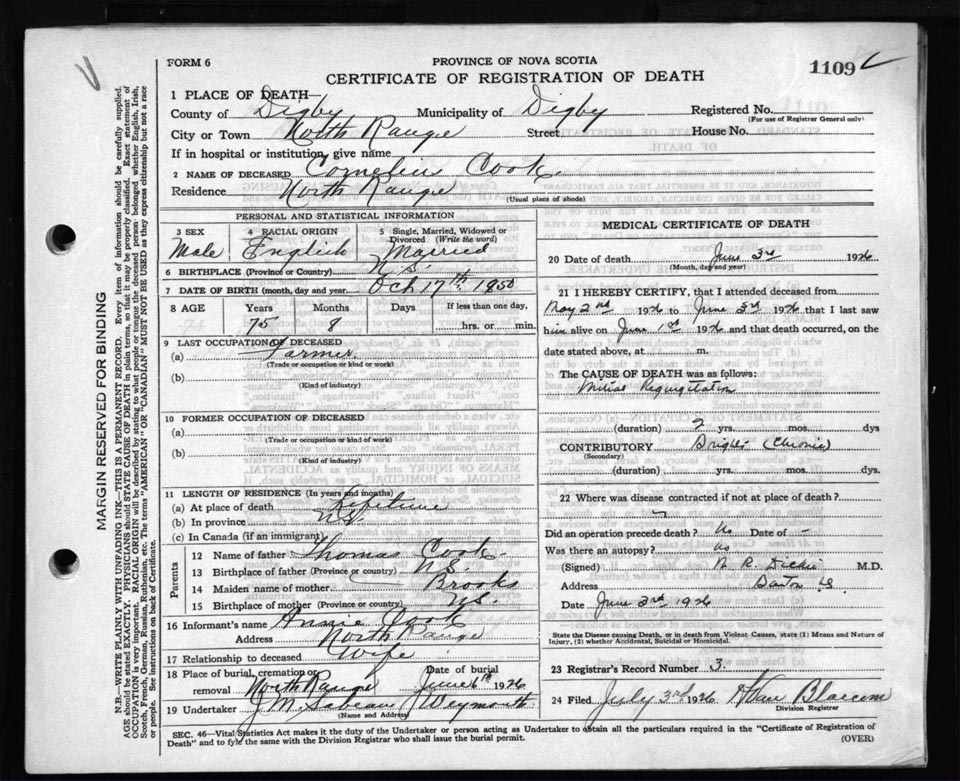 FORM 6
PROVINCE OF NOVA SCOTIA
CERTIFICATE OF REGISTRATION OF DEATH
1109
1 PLACE OF DEATH—
County of Digby Municipality of Digby Registered No.
(For use of Registrar General only)
City or Town North Range Street House No.
If in hospital or institution, give name
2 NAME OF DECEASED Cornelius Cook
Residence North Range
(Usual place of abode)
PERSONAL AND STATISTICAL INFORMATION
3 SEX Male
4 RACIAL ORIGIN English
5 Single, Married, Widowed or Divorced (Write the word) Married
6 BIRTHPLACE (Province or Country) N.S.
7 DATE OF BIRTH (month, day and year) Oct 17th 1850
8 AGE Years 75 Months 8 If less than one day, hrs. or min.
9 LAST OCCUPATION OF DECEASED
(a) Farmer
(Trade or occupation or kind or work)
(b)
(Kind of industry)
10 FORMER OCCUPATION OF DECEASED
(a)
(Trade or occupation or kind of work)
(b)
(Kind of industry)
11 LENGTH OF RESIDENCE (In years and months)
(a) At place of death Lifetime
(b) In province N.S.
(c) In Canada (if an immigrant)
Parents
12 Name of father Thomas Cook
13 Birthplace of father (Province or country) N.S.
14 Maiden name of mother Brooks
15 Birthplace of mother (Province or country) N.S.
16 Informant's name Annie Cook
Address North Range
17 Relationship to deceased Wife
18 Place of burial, cremation or removal North Range Date of burial June 6th 1926
19 Undertaker J. M. Sabean Weymouth
(Name and Address)
MEDICAL CERTIFICATE OF DEATH
20 Date of death June 3rd 1926
(Month, day and year)
21 I HEREBY CERTIFY, that I attended deceased from
May 2nd 1926 to June 3rd 1926 that I last saw
him alive on June 1st 1926 and that death occurred, on the
date stated above, at m.
The CAUSE OF DEATH was as follows:
Mitral Regurgitation
(duration) 2 yrs. mos. dys
CONTRIBUTORY Brights (Chronic)
(Secondary)
(duration) yrs. mos. dys.
22 Where was disease contracted if not at place of death?
Did an operation precede death? No Date of -
Was there an autopsy? No
(Signed) R. Dickie M.D.
Address Barton
Date June 3rd 1926
State the Disease causing Death, or in death from Violent Causes, state (1) Means and Nature of
Injury, (2) whether Accidental, Suicidal or Homicidal.
23 Registrar's Record Number 3
24 Filed July 3rd 1926 Van Blarcom
Division Registrar
SEC. 46—Vital Statistics Act makes it the duty of the Undertaker or person acting as Undertaker to obtain all the particulars required in the "Certificate of Registration of
Death" and to fyle the same with the Division Registrar who shall issue the burial permit.
(OVER)
MARGIN RESERVED FOR BINDING
N.B.—WRITE PLAINLY WITH UNFADING INK—THIS IS A PERMANENT RECORD. Every item of information should be carefully supplied.
AGE should be stated EXACTLY. PHYSICIANS should STATE CAUSE OF DEATH in plain terms, so that it may be properly classified. Exact statement of
OCCUPATION is very important. RACIAL ORIGIN will be described by stating to what people or tongue the deceased person belonged whether English, Irish,
Scotch, French, German, Russian, Ruthenian, etc. The terms "AMERICAN" OR "CANADIAN" MUST NOT BE USED as they express citizenship but not a race
or people. See instructions on back of Certificate.